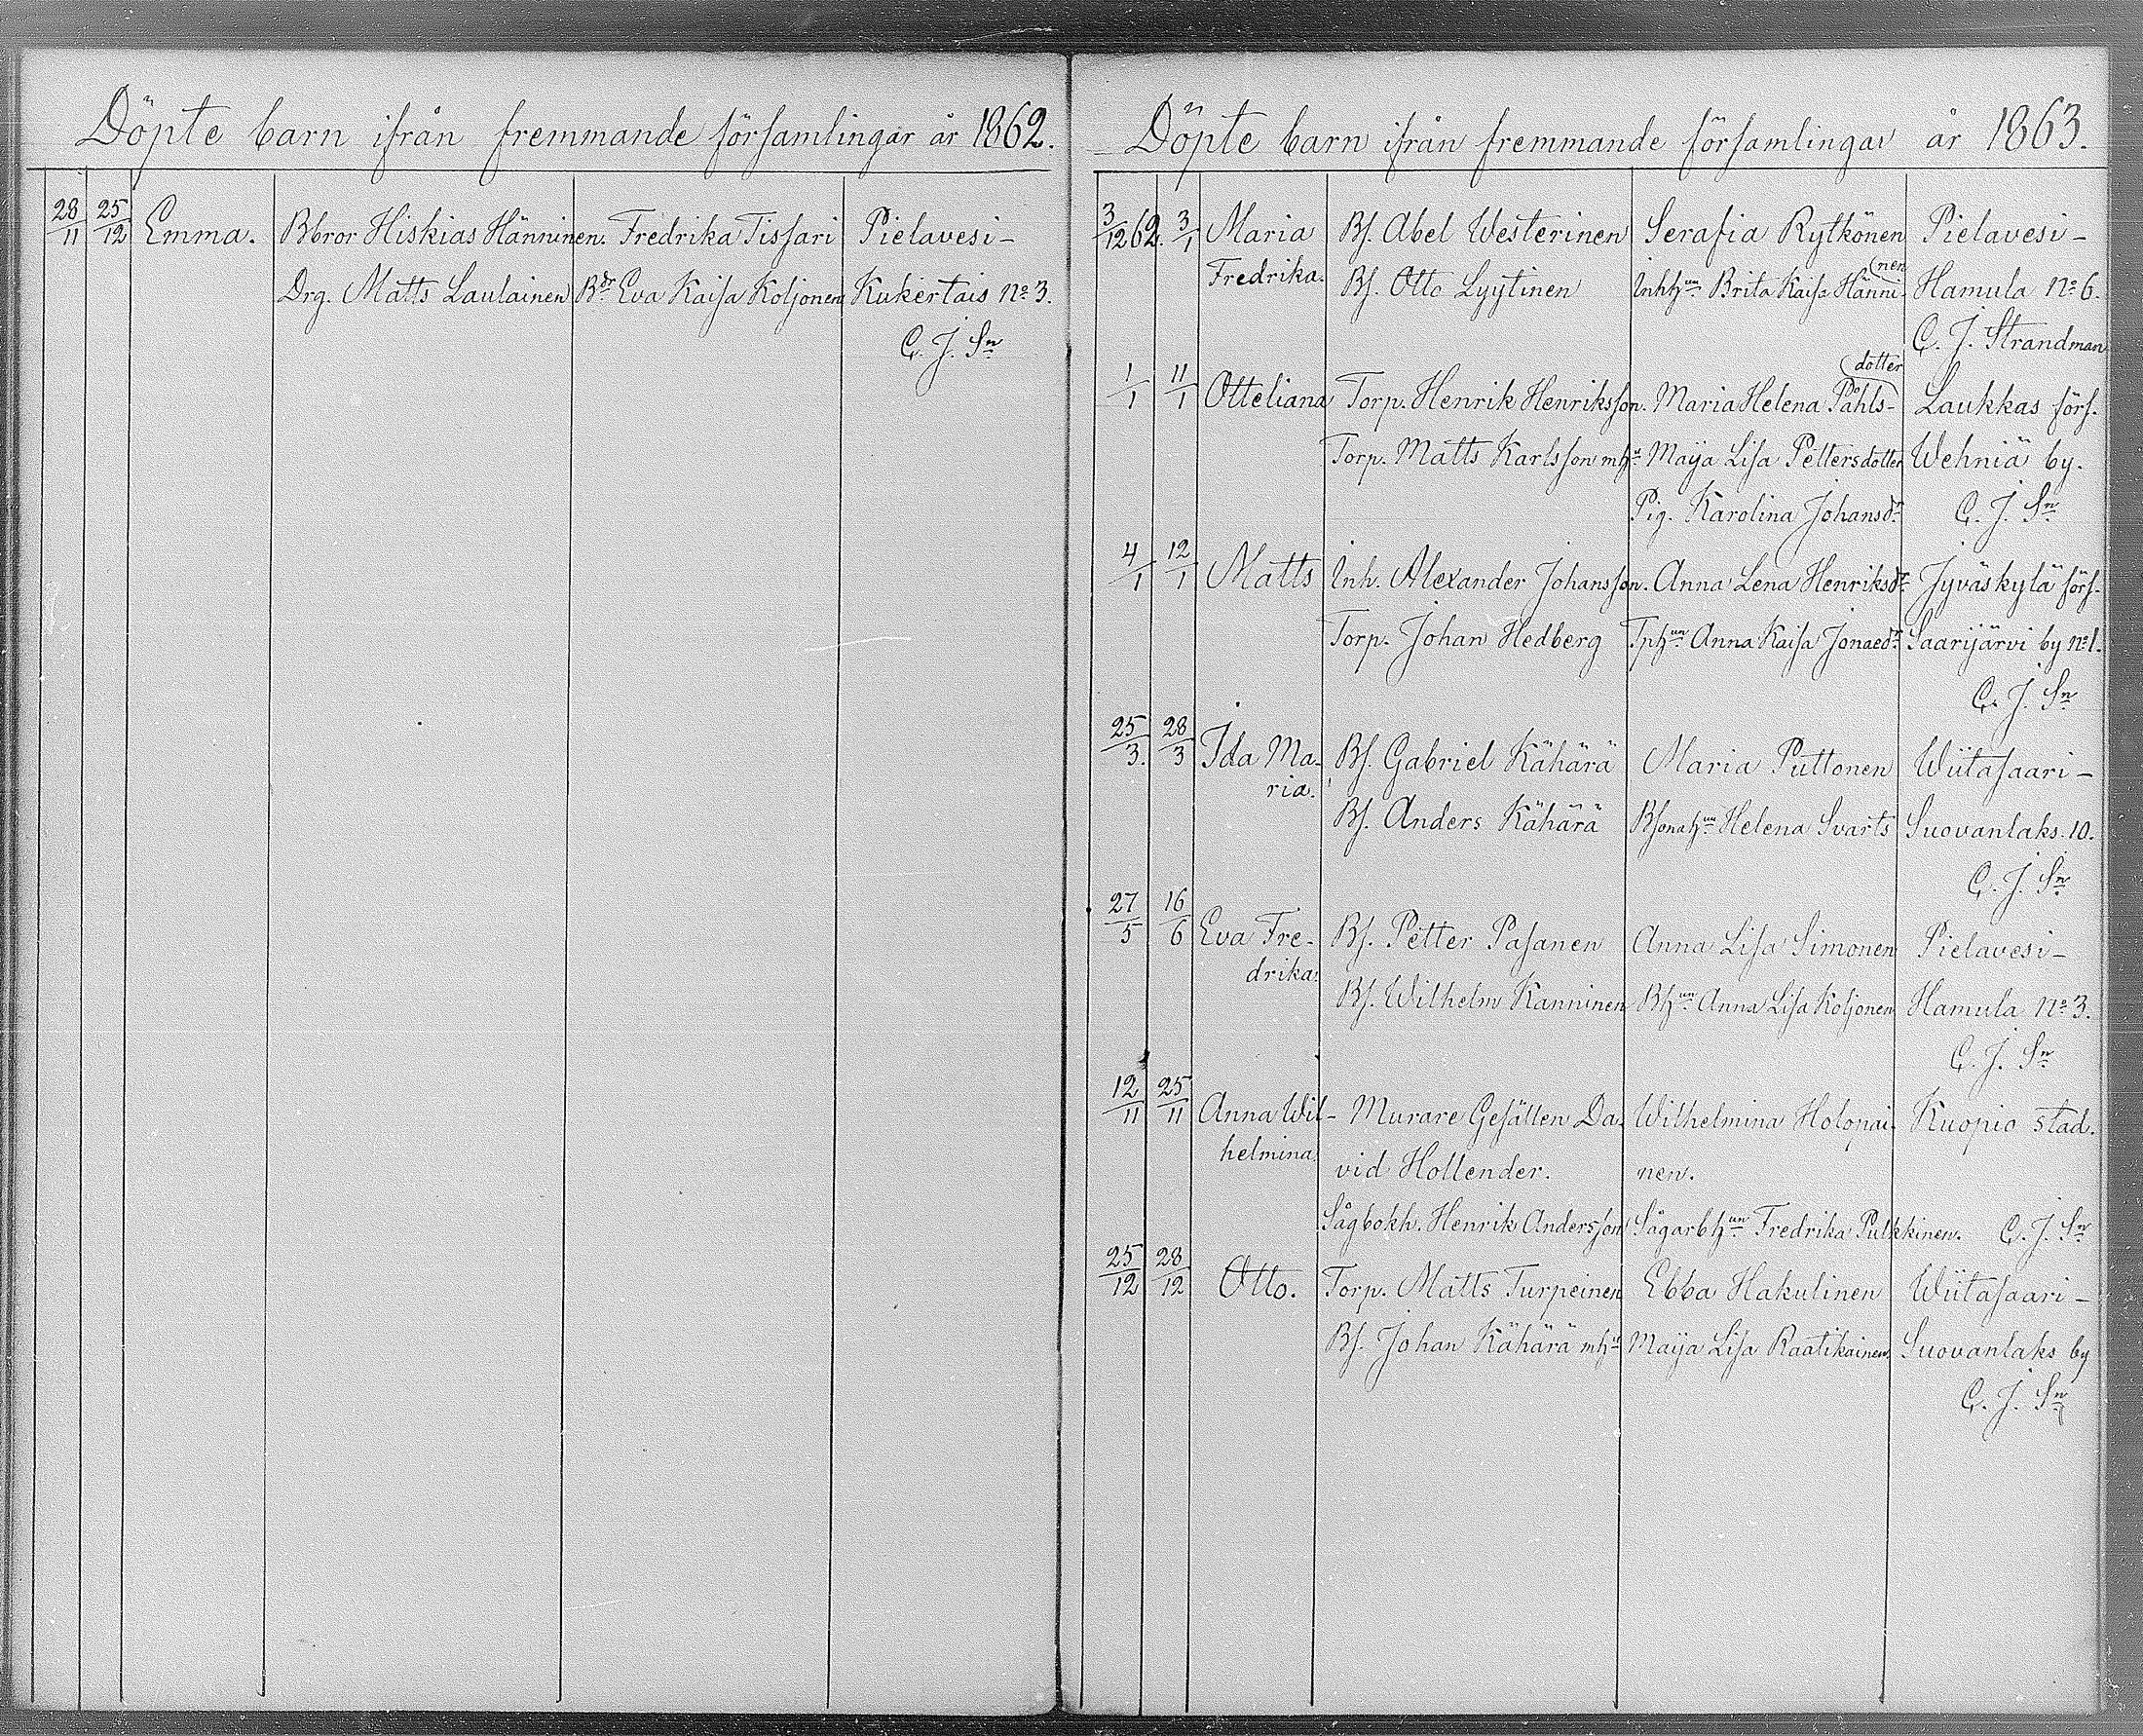 Döpte barn ifrån fremmande församlingar år 1862.
28/11 25/12 Emma. Bbror Hiskias Hänninen. Fredrika Tissari Pielavesi-
Drg. Matts Laulainen Bdr Eva Kaisa Koljonen Kukertais No 3.
C. J. Sn
Döpte barn ifrån fremmande församlingar år 1863.
3/12 62. 3/1 Maria Bs. Abel Westerinen Serafia Rytkönen Pielavesi-
Fredrika. Bs. Otto Lyytinen Inhhun Brita Kaisa Hänninen Hamula No 6.
C. J. Strandman
1/1 11/1 Otteliana Torp. Henrik Henriksson. Maria Helena Påhls-dotter Laukkas förs.
Torp. Matts Karlsson mhu Maija Lisa Pettersdotter Wehniä by.
Pig. Karolina Johansdr C. J. Sn
4/1 12/1 Matts Inh. Alexander Johansson. Anna Lena Henriksdr Jyväskylä förs.
Torp. Johan Hedberg Tphun Anna Kaisa Jonaedr Saarijärvi by No 1.
C. J. Sn
25/3. 28/3 Ida Ma- Bs. Gabriel Kähärä Maria Puttonen Wiitasaari-
ria. Bs. Anders Kähärä Bsonahun Helena Svarts Suovanlaks. 10.
C. J. Sn
27/5 16/6 Eva Fre- Bs. Petter Pasanen Anna Lisa Simonen Pielavesi-
drika. Bs. Wilhelm Kanninen Bhun Anna Lisa Koljonen Hamula No 3.
C. J. Sn
12/11 25/11 Anna Wil- Murare Gesällen Da- Wilhelmina Holopai- Kuopio stad.
helmina. vid Hollender. nen.
Sågbokh. Henrik Andersson Sågarbhun Fredrika Pulkkinen. C. J. Sn
25/12 28/12 Otto. Torp. Matts Turpeinen Ebba Hakulinen Wiitasaari-
Bs. Johan Kähärä mhu Maija Lisa Raatikainen. Suovanlaks by
C. J. Sn